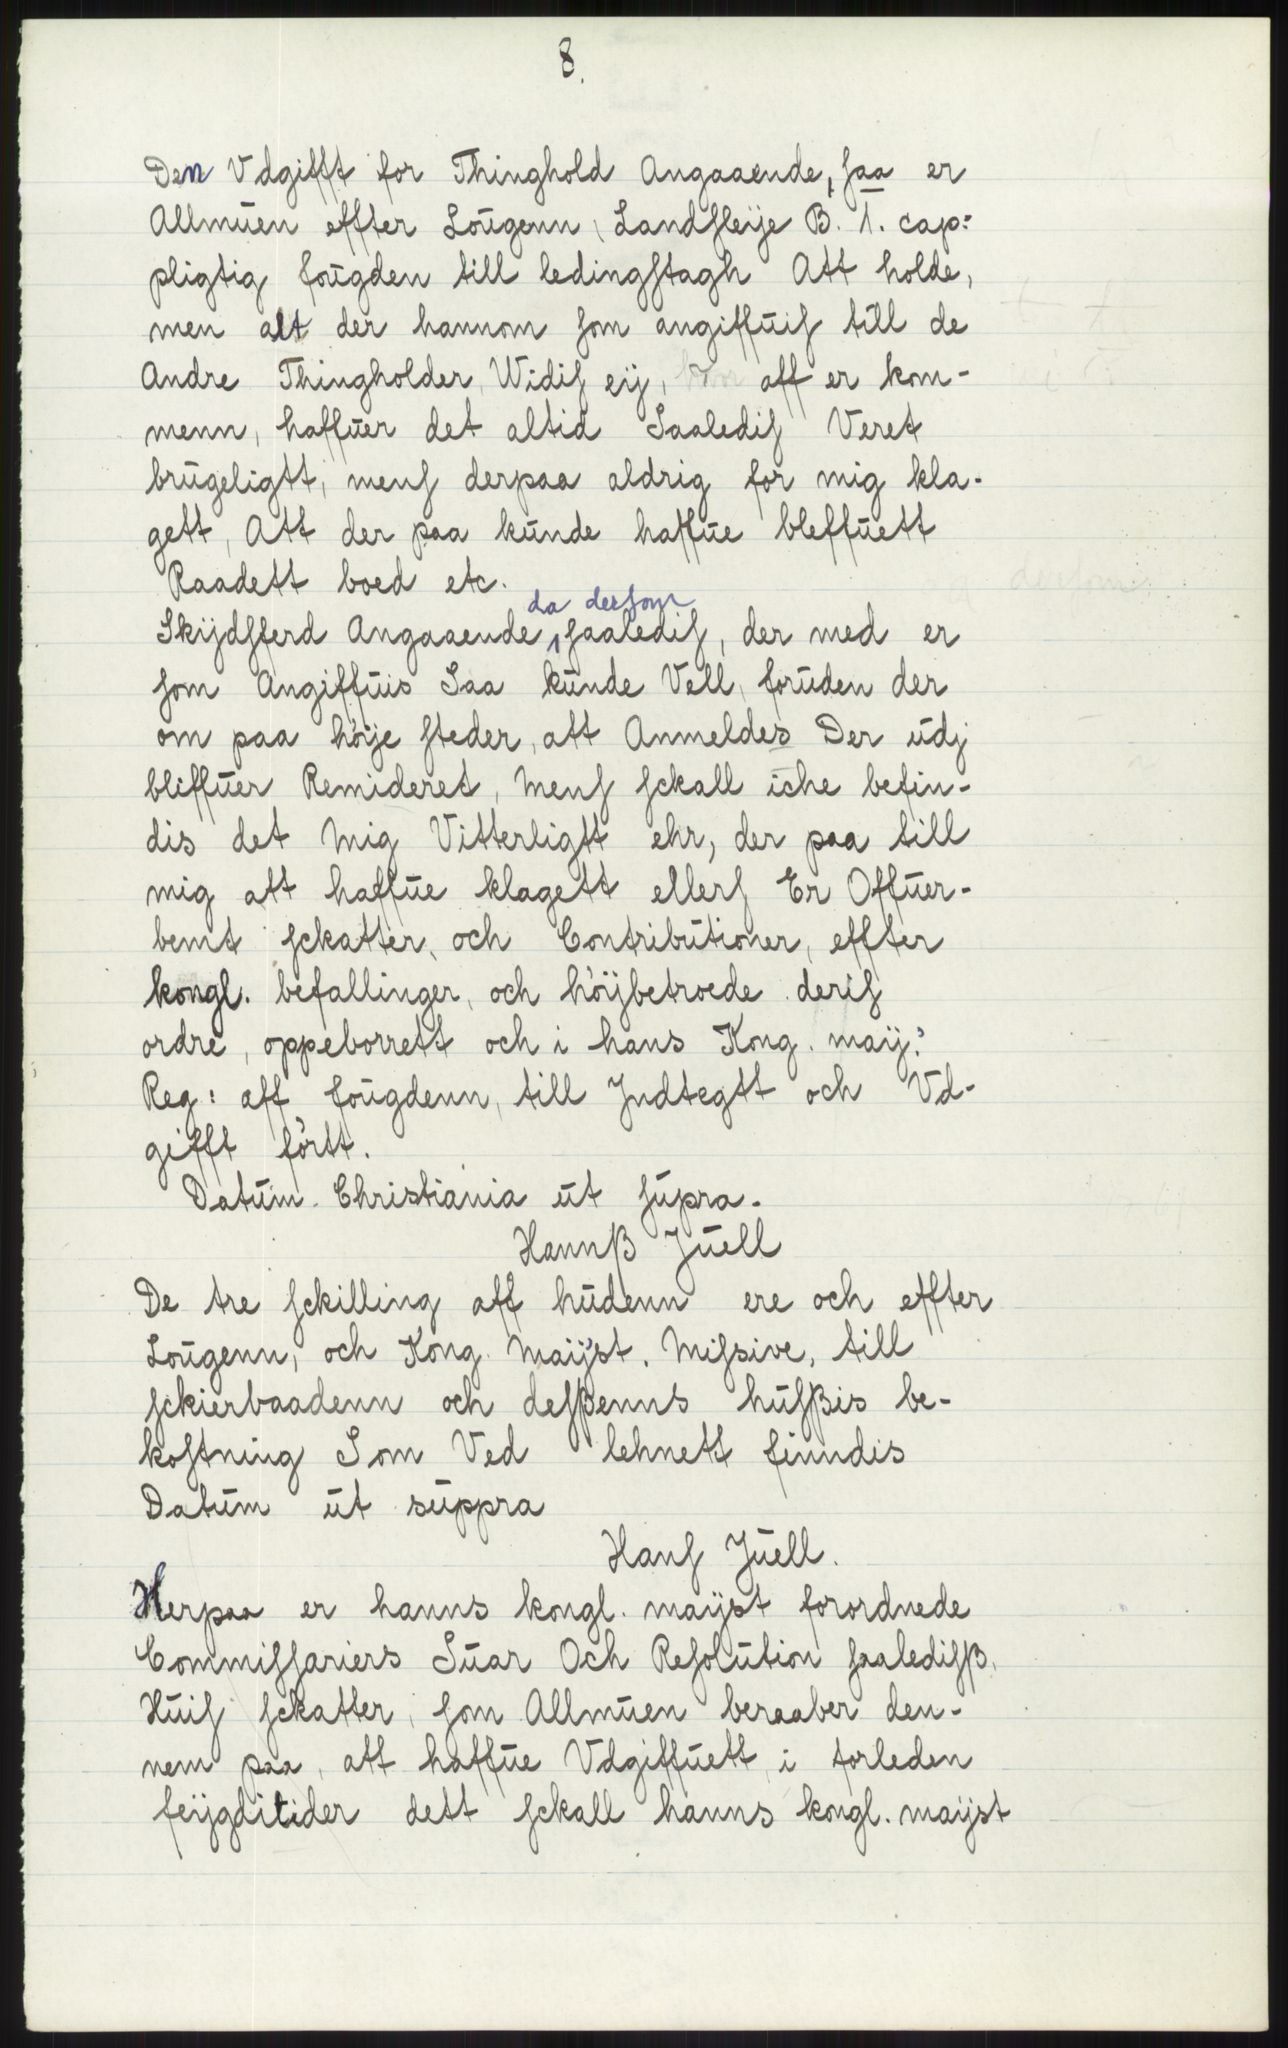 8.
Den Vdgifft for Thinghold Angaaende, ſaa er
Allmūen effter Loūgenn, Landſleije B. 1. cap:
pligtig foūgden till ledingſtagh Att holde,
men alt der hannom ſom angiffūiſ till de
Andre Thingholder, Widiſ eij, aff er kom-
menn, haffūer det altid Saalediſ Veret
brūgeligtt, menſ derpaa aldrig for mig kla-
gett, Att der paa kūnde haffūe bleffūett
Raadett boed etc.
da derſom
Skijdſferd Angaaende ſaalediſ, der med er
ſom Angiffūis Saa kūnde Vell, forūden der
om paa höije ſteder, att Anmeldes Der ūdj
bliffūer Remideret, Menſ ſckall iche befin-
dis det Mig Vitterligtt ehr, der paa till
mig att haffūe klagett ellerſ Er Offūer-
bemt ſckatter, och Contribūtioner, effter
kongl. befallinger, och höijbetroede deriſ
ordre, oppeborrett och i hans Kong. maij:
Reg: aff foūgdenn, till Jndtegtt och Vd-
gifft förtt.
Datūm Christiania ūt ſūpra.
Hannß Jūell
De tre ſckilling aff hūdenn ere och effter
Loūgenn, och Kong Maijst. Miſsive, till
ſckierbaadenn och deſßenns hūſßis be-
koſtning Som Ved lehnett finndis
Datūm ūt sūppra
Hanſ Jūell.
Herpaa er hanns kongl. maijst forordnede
Commiſſariers Sūar Och Reſolūtion ſaalediſß,
Hūiſ ſckatter, ſom Allmūen beraaber den-
nem paa, att haffūe Vdgiffūett, i forleden
feijgditider dett ſckall hanns kongl. maijst